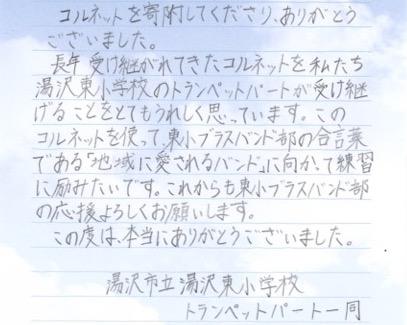 コルネットを寄附してくださり、ありがとう
ございました。
長年受け継がれてきたコルネットを私たち
湯沢東小学校のトランペットパートが受け継
げることをとてもうれしく思っています。この
コルネットを使って、東小ブラスバンド部の合言葉
である「地域に愛されるバンド」に向かって練習
に励みたいです。これからも東小ブラスバンド部
の応援よろしくお願いします。
この度は、本当にありがとうございました。
湯沢市立湯沢東小学校
トランペットパート一同